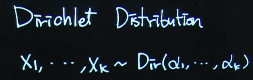 Dirichlet Distribution
X₁, ⋯, Xₖ ~ Dir(α₁, ⋯, αₖ)